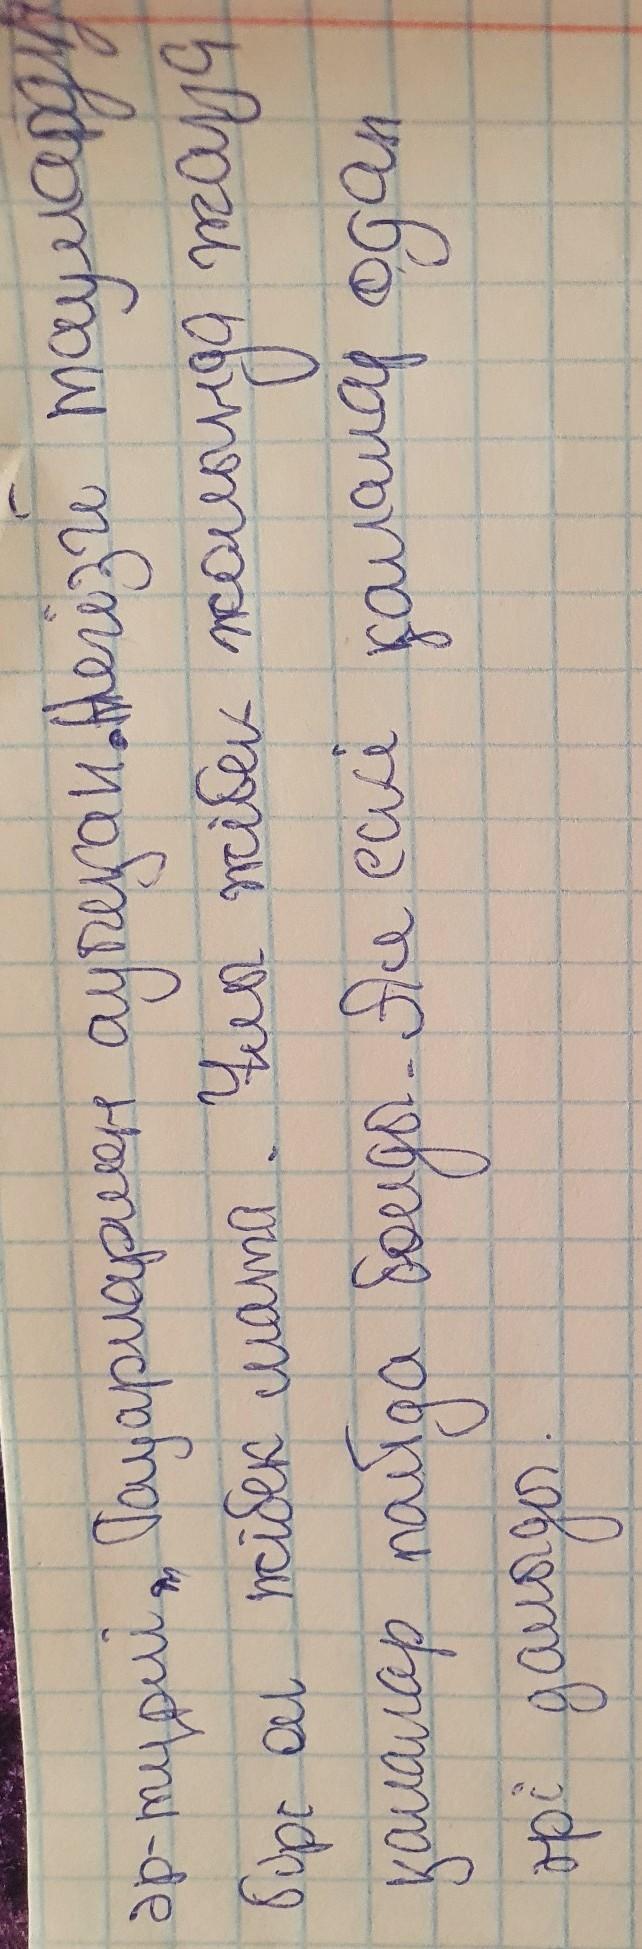 әр-түрлі, Тауарларман ауысқан. Негізгі тауларды
бірі ол жібек мата. Ұлы жібек жолында жаңа
қалалар пайда болды. Ал ескі қалалар одан
әрі дамыды.